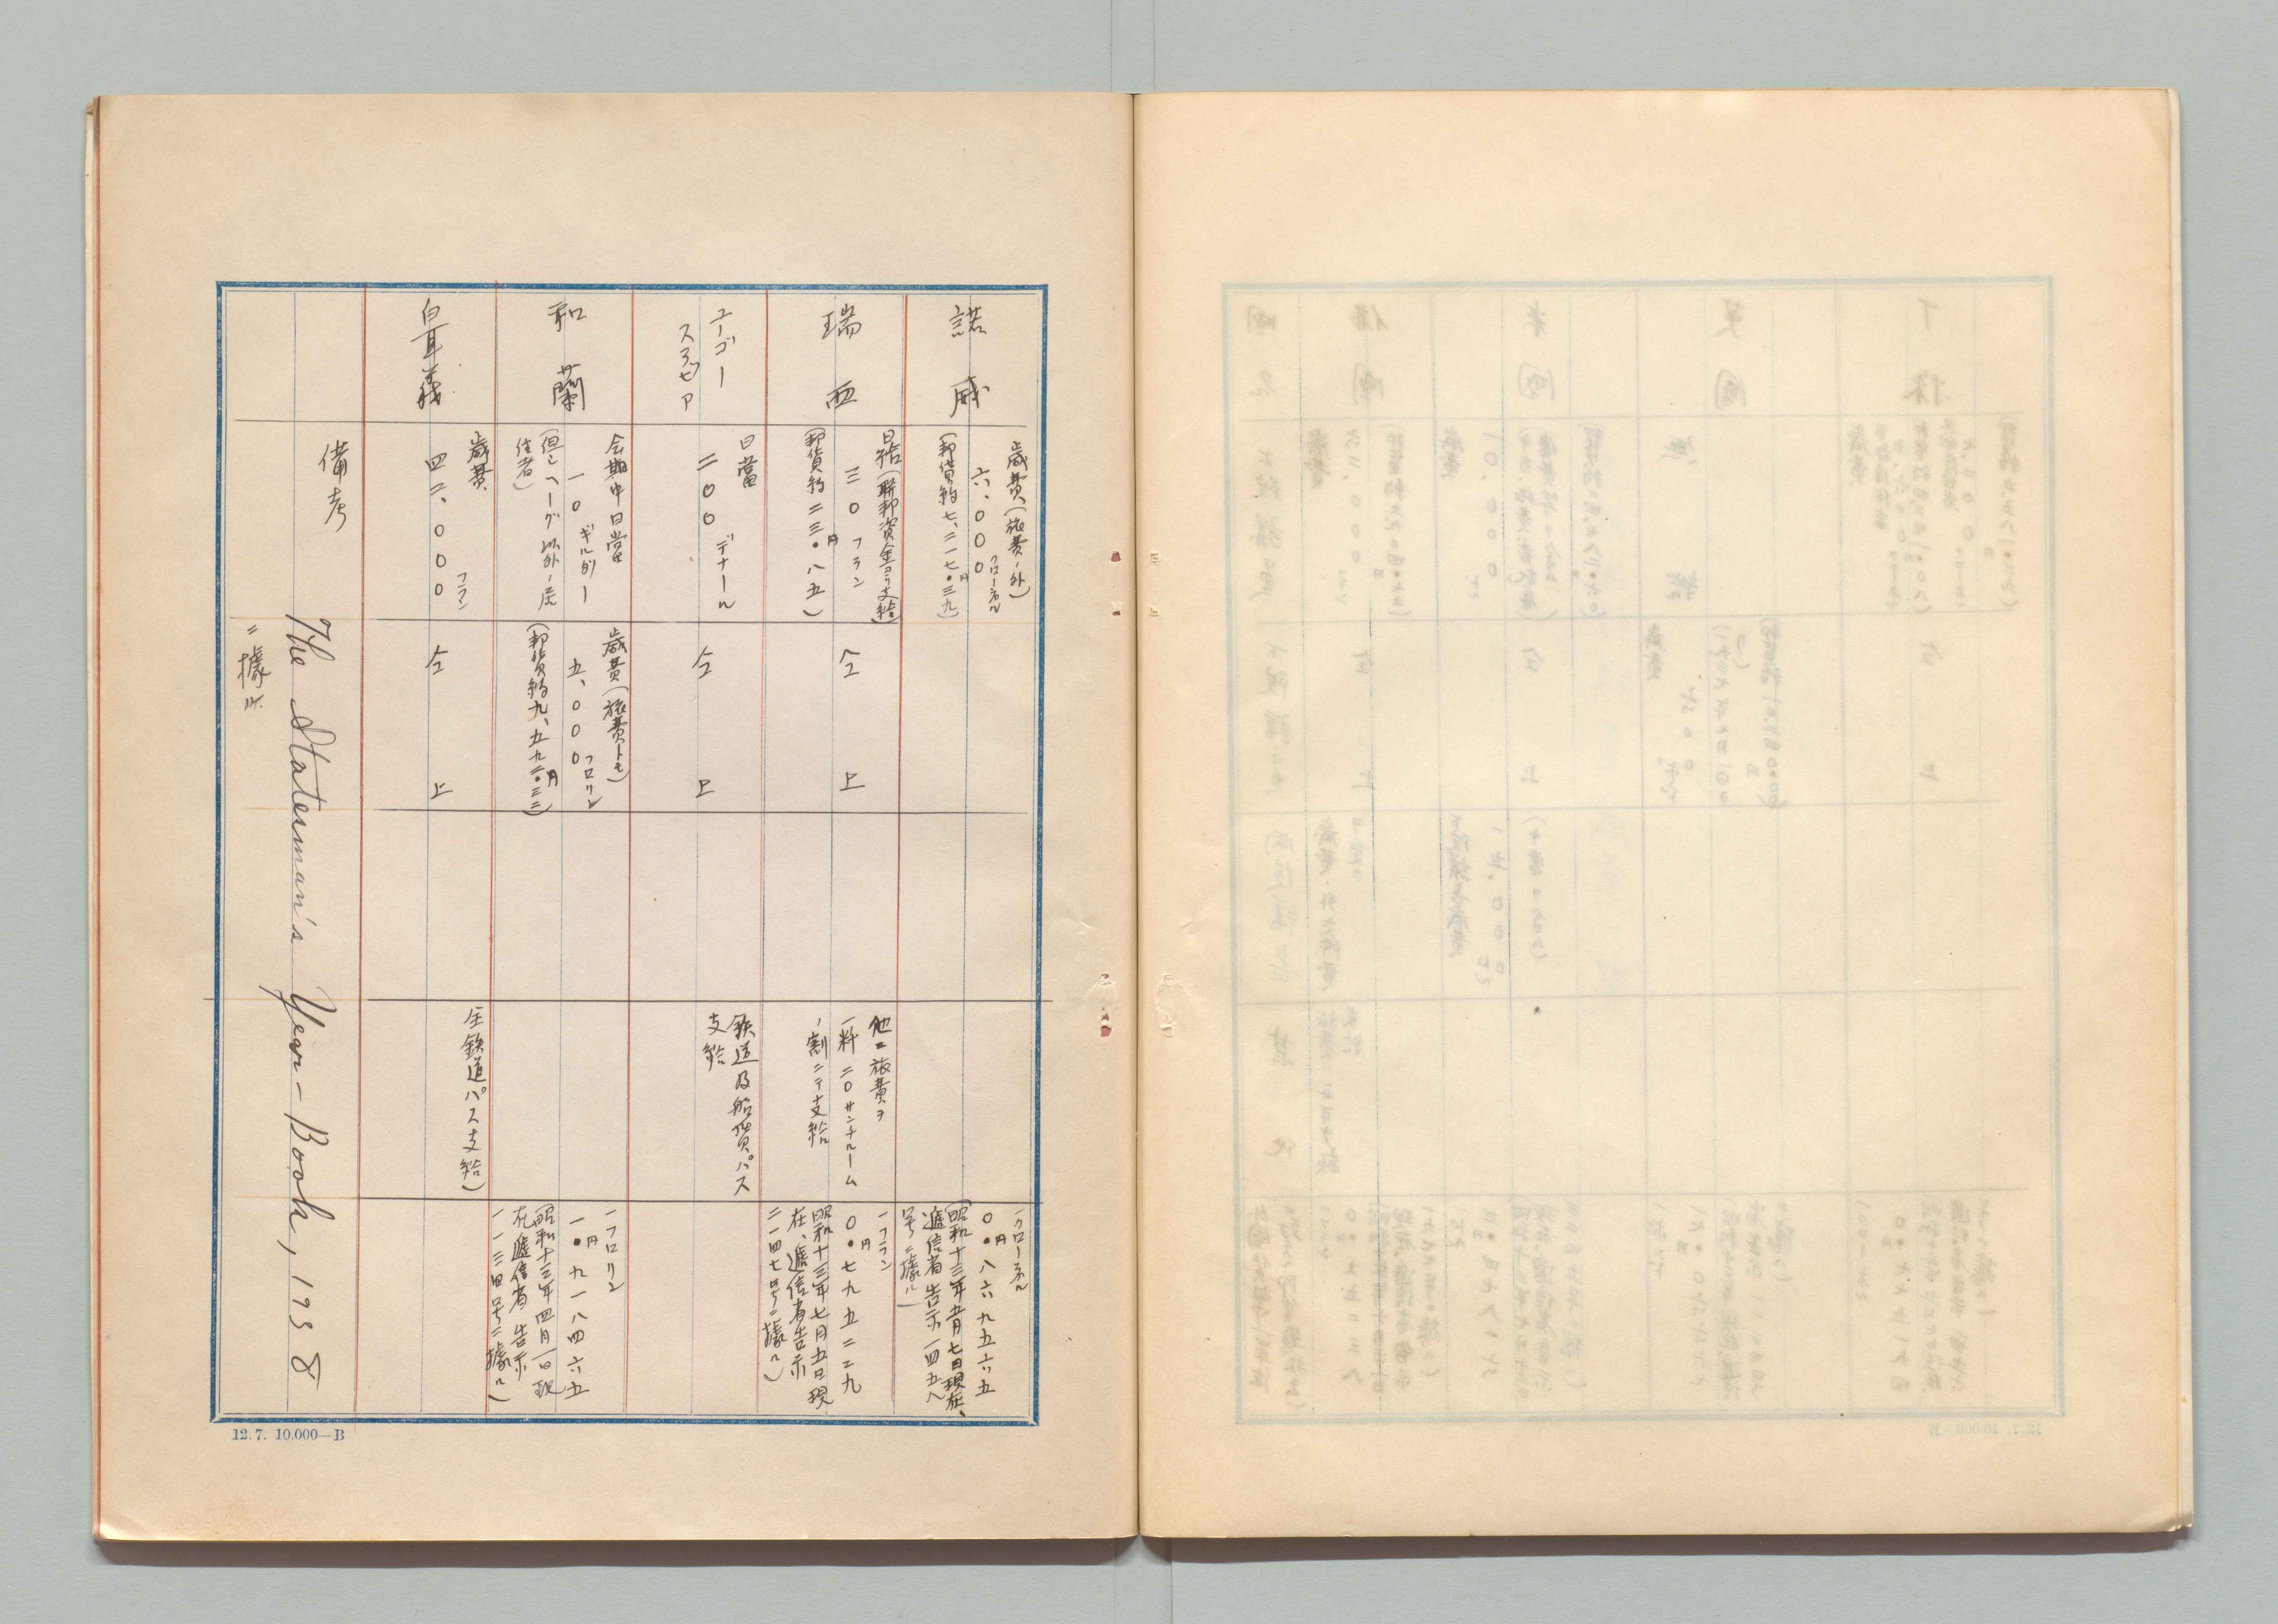 諾威
歳費(旅費ノ外)
六、〇〇〇クローネル
(邦貨約七、二一七円・三九)
一クローネル
〇円・八六九五六五
(昭和十三年五月七日現在、
逓信省告示一四五八
号ニ據ル)
瑞西
日給(聯邦資金ヨリ支給)
三〇フラン
(邦貨約二三円・八五)
仝上
他ニ旅費ヲ
一粁二〇サンチーム
ノ割ニテ支給
一フラン
〇円・七九五二二九
昭和十三年七月五日現
在、逓信省告示
二一四七号ニ據ル)
ユーゴー
スラヴヒア
日當
二〇〇デナール
仝上
鉄道及船賃パス
支給
和蘭
会期中日當
一〇ギルダー
(但シヘーグ以外ノ居
住者)
歳費(旅費トモ)
五、〇〇〇フロリン
(邦貨約九、五九二円・三三)
一フロリン
一円・九一八四六五
(昭和十三年四月一日現
在逓信省告示
一一三四号ニ據ル)
白耳義
歳費
四二、〇〇〇フラン
仝上
全鉄道パス支給)
備考
The Statesman's Year-Book, 1938
ニ據ル.
12.7. 10.000—B